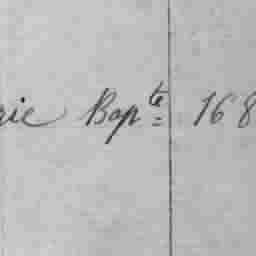 rie Bapte= 168